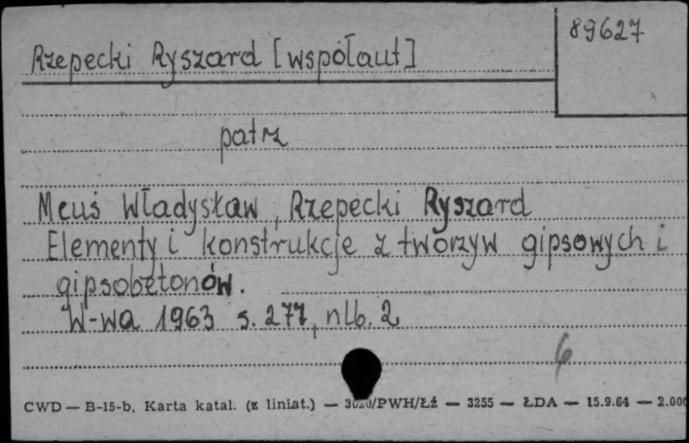 89627
Rzepecki Ryszard [współaut]
patrz
Meuś Władysław, Rzepecki Ryszard
Elementy i konstrukcje z tworzyw gipsowych i
gipsobetonów.
W-wa 1963 s. 277, nlb. 2
6
CWD — B-15-b, Karta katal. (z liniat.) — /PWH/Łź — 3255 — ŁDA — 15.9.64 — 2.000